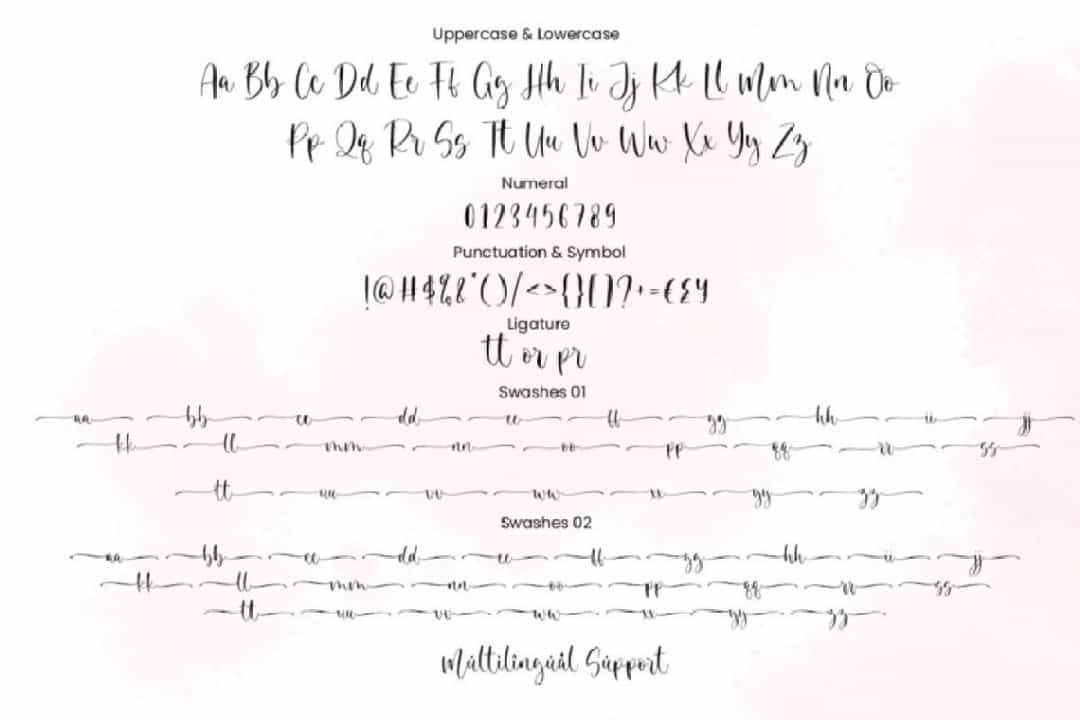 Uppercase & Lowercase
Aa Bb Cc Dd Ee Ff Gg Hh Ii Jj Kk Ll Mm Nn Oo
Pp Qq Rr Ss Tt Uu Vv Ww Xx Yy Zz
Numeral
0123456789
Punctuation & Symbol
!@#$%&*()/<>{}[]?+=€£¥
Ligature
tt or pr
Swashes 01
aa bb cc dd ee ff gg hh ii jj
kk ll mm nn oo pp qq rr ss
tt uu vv ww xx yy zz
Swashes 02
aa bb cc dd ee ff gg hh ii jj
kk ll mm nn oo pp qq rr ss
tt uu vv ww xx yy zz
Múltilíngúál Súpport